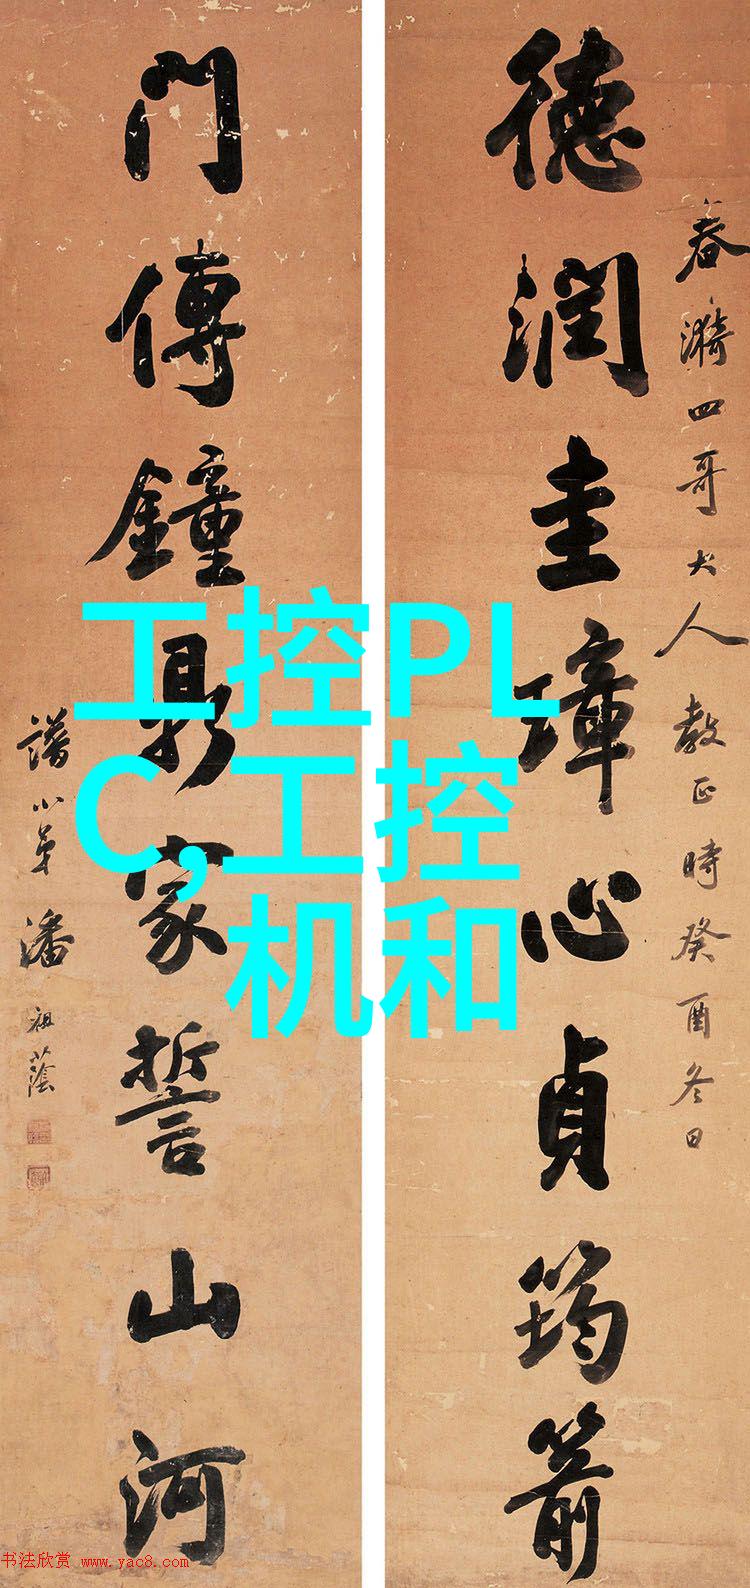 春漪四哥大人教正時癸酉冬日
德潤圭璋心貞筠箭
門傳鐘鼎家誓山河
譜小弟潘祖蔭
工控PL
C,工控
机和
书法欣赏 www.yac8.com